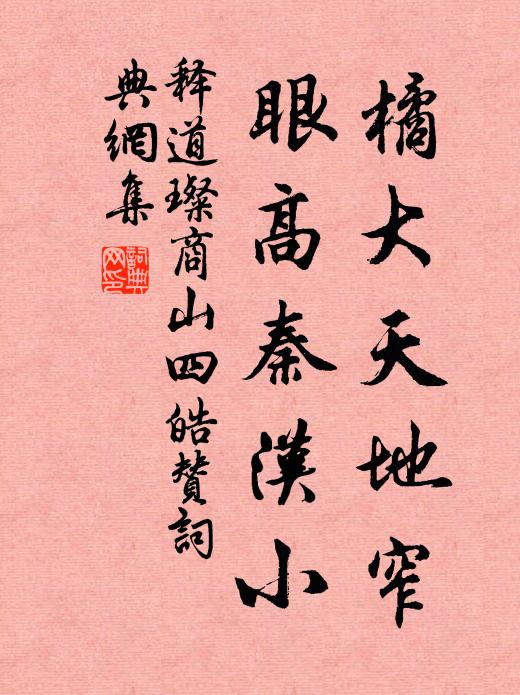 橘大天地窄
眼高秦漢小
释道璨商山四皓贊詞
典網集
詞典网印